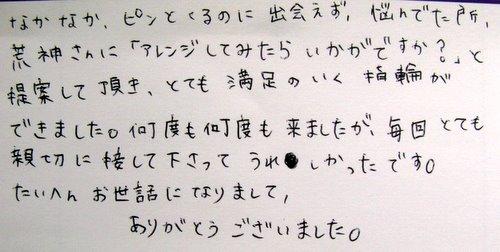 なかなか、ピンとくるのに出会えず、悩んでた所、
荒神さんに「アレンジしてみたらいかがですか?」と
提案して頂き、とても満足のいく指輪が
できました。何度も何度も来ましたが、毎回とても
親切に接して下さってうれしかったです。
たいへんお世話になりまして、
ありがとうございました。